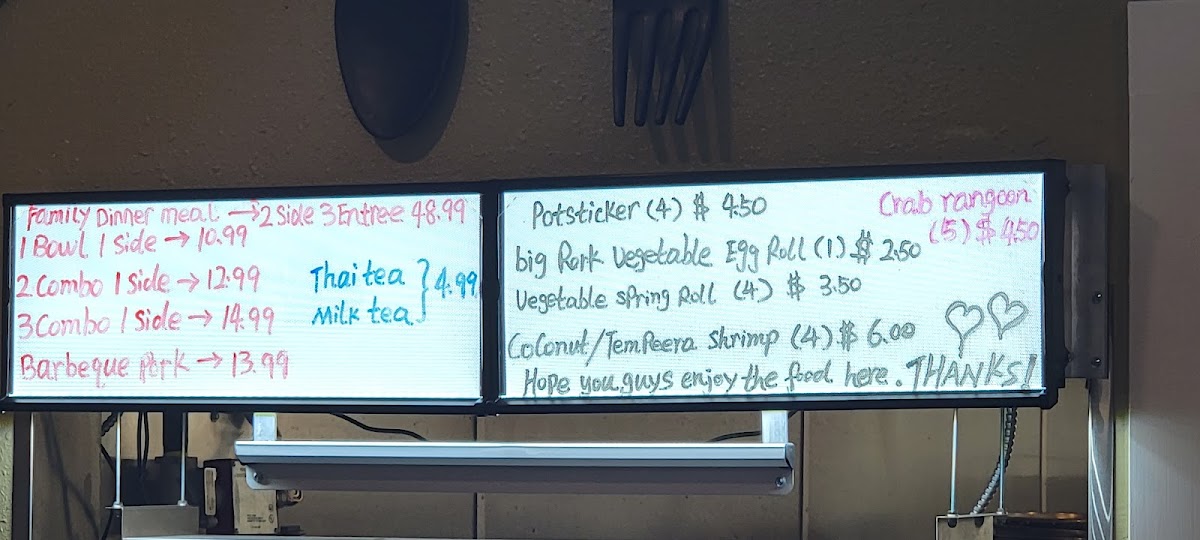 Family Dinner meal → 2 Side 3 Entree 48.99
1 Bowl 1 Side → 10.99
2 Combo 1 side → 12.99
3 Combo 1 Side → 14.99
Barbeque Pork → 13.99
Thai tea } 4.99
Milk tea
Potsticker (4) $ 4.50
big Pork Vegetable Egg Roll (1) $ 2.50
Vegetable spring Roll (4) $ 3.50
Coconut/Tempeera Shrimp (4) $ 6.00
Hope you guys enjoy the food here. THANKS!
Crab rangoon
(5) $ 4.50